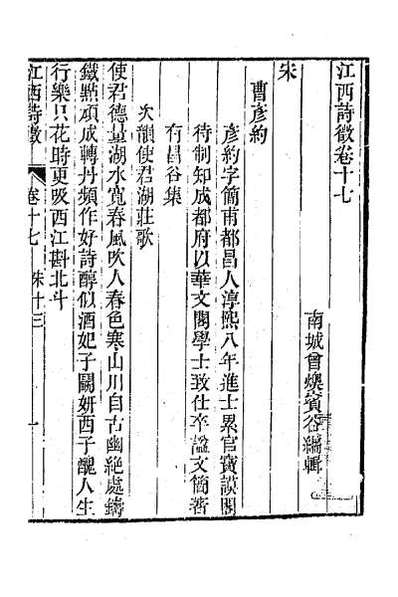 江西詩徵卷十七
南城曾燠賓谷編輯
宋
曹彥約
彥約字簡甫都昌人淳熙八年進士累官寶謨閣
待制知成都府以華文閣學士致仕卒諡文簡著
有昌谷集
次韻使君湖莊歌
使君德量湖水寬春風吹人春色寒山川自古幽絕處鑄
鐵點頑成轉丹頻作好詩醇似酒妃子鬭妍西子醜人生
行樂只花時更吸西江斟北斗
江西詩徵
卷十七
宋十三
一